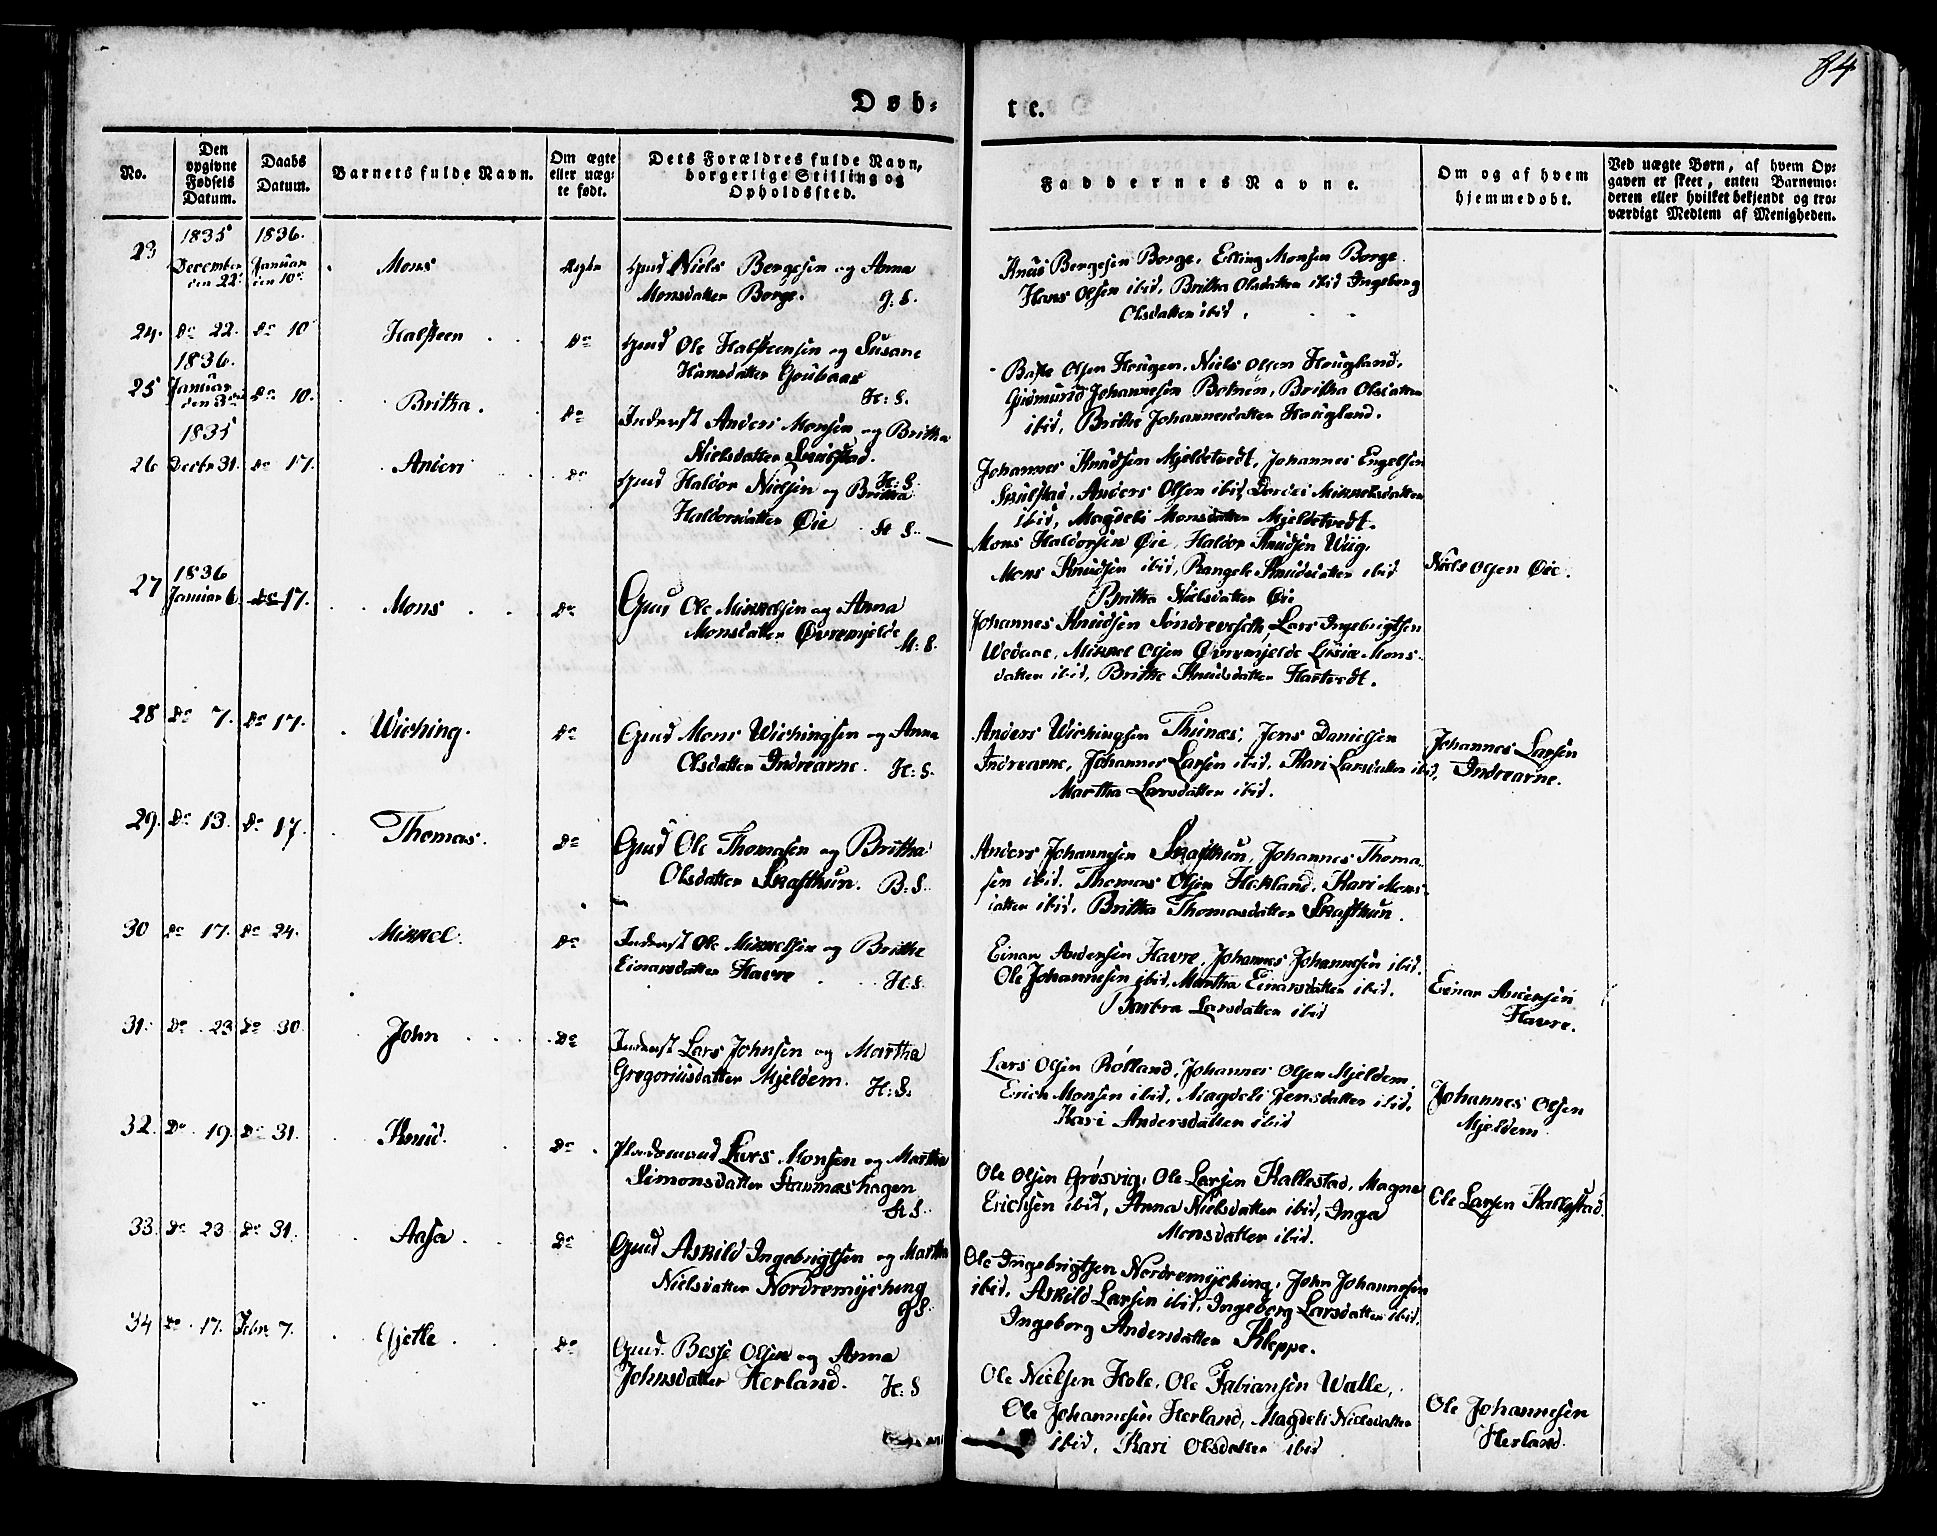 84
Døb-
te.
No.
Den
opgivne
Fødsels
Datum.
Daabs
Datum.
Barnets fulde Navn.
Om ægte
eller uæg-
te født.
Dets Forældres fulde Navn,
borgerlige Stilling og
Opholdssted.
Faddernes Navne.
Om og af hvem
hjemmedøbt.
Ved uægte Børn, af hvem Op-
gaven er skeet, enten Barnemo-
deren eller hvilket bekjendt og tro-
værdigt Medlem af Menigheden.
23
1835
December
den 22
1836.
Januar
den 10
Mons
Ægte
Gmd Niels Bergesen og Anna
Monsdatter Borge. G. S.
Knud Bergesen Borge, Erling Monsen Borge
Hans Olsen ibid, Britha Olsdatter ibid Ingeborg
Olsdatter ibid.
24. Do 22. Do 10
Halsteen
Do
Gmd Ole Halsteensen og Susane
Hansdatter
H: S.
Olsen Hougen, Niels Olsen Hougland,
Gudmund Johannesen Botnen, Britha Olsdatter
ibid, Brithe Johannesdatter Hougland.
25
1836.
Januar
den 3die
Do 10.
Britha.
Do
Inderst Anders Monsen og Britha
Nielsdatter Skulstad.
H: S.
Johannes Knudsen Mjeldetvedt, Johannes Engelsen
Skulstad, Anders Olsen ibid, Dordei Mikkelsdatter
ibid, Magdeli Monsdatter Mjeldetvedt.
26
1835
Decbr 31. Do 17.
Anders
Do
Gmd Haldor Nielsen og Britha
Haldorsdatter Øie H S.
Mons Haldorsen Øie, Haldor Knudsen Wiig,
Mons Knudsen ibid, Rangele Knudsdatter ibid
Britha Nielsdatter Øie
Niels Olsen Øie.
27
1836
Januar 6 Do 17.
Mons
Do
Gmd Ole Mikkelsen og Anna
Monsdatter Øvremjelde
H: S.
Johannes Knudsen Søndrevedt, Lars Ingebrigtsen
Wedaae, Mikkel Olsen Øvremjelde Mons-
datter ibid, Brithe Knudsdatter Hartvedt.
28 Do 7. Do 17.
Wiching.
Do
Gmd Mons Wichingsen og Anna
Olsdatter Indrearne. H: S.
Anders Wichingsen Thunæs, Jens Danielsen
Indrearne, Johannes Larsen ibid, Kari Larsdatter ibid,
Martha Larsdatter ibid.
Johannes Larsen
Indrearne.
29. Do 13. Do 17.
Thomas.
Do
Gmd Ole Thomasen og Britha
Olsdatter Skafthun. B: S.
Anders Johannesen Skafthun, Johannes Thoma-
sen ibid. Thomas Olsen Hokland, Kari Mons-
datter ibid, Britha Thomasdatter Skafthun.
30 Do 17. Do 24.
Mikkel.
Do
Inderst Ole Mikkelsen og Brithe
Einarsdatter Havre H: S.
Einar Andersen Havre, Johannes Johannesen ibid.
Ole Johannesen ibid, Martha Einarsdatter ibid.
Barbra Larsdatter ibid
Einar Andersen
Havre.
31. Do 23 Do 30.
John
Do
Inderst Lars Johnsen og Martha
Gregoriusdatter Mjeldem. H: S.
Lars Olsen Rølland, Johannes Olsen Mjeldem,
Erich Monsen ibid, Magdeli Jensdatter ibid,
Kari Andersdatter ibid
Johannes Olsen
Mjeldem
32. Do 19. Do 31.
Knud.
Do
Pladsmand Lars Monsen og Martha
Simonsdatter Hamnashagen
H S.
Ole Olsen Grøsvig, Ole Larsen Kallestad, Magne
Erichsen ibid, Anna Nielsdatter ibid, Inga
Monsdatter ibid.
Ole Larsen Kallestad.
33. Do 23 Do 31.
Aasa.
Do
Gmd Askild Ingebrigtsen og Martha
Nielsdatter Nordremyching
G S.
Ole Ingebrigtsen Nordremyching, John Johannesen
ibid, Askild Larsen ibid, Ingeborg Larsdatter ibid,
Ingeborg Andersdatter Kleppe.
34 Do 17. Febr 7.
Gjetle
Do
Gmd. Besse Olsen og Anna
Johnsdatter Herland. H: S
Ole Nielsen Hole, Ole Fabiansen Walle,
Ole Johannesen Herland, Magdeli Nielsdatter
ibid, Kari Olsdatter ibid
Ole Johannesen
Herland.